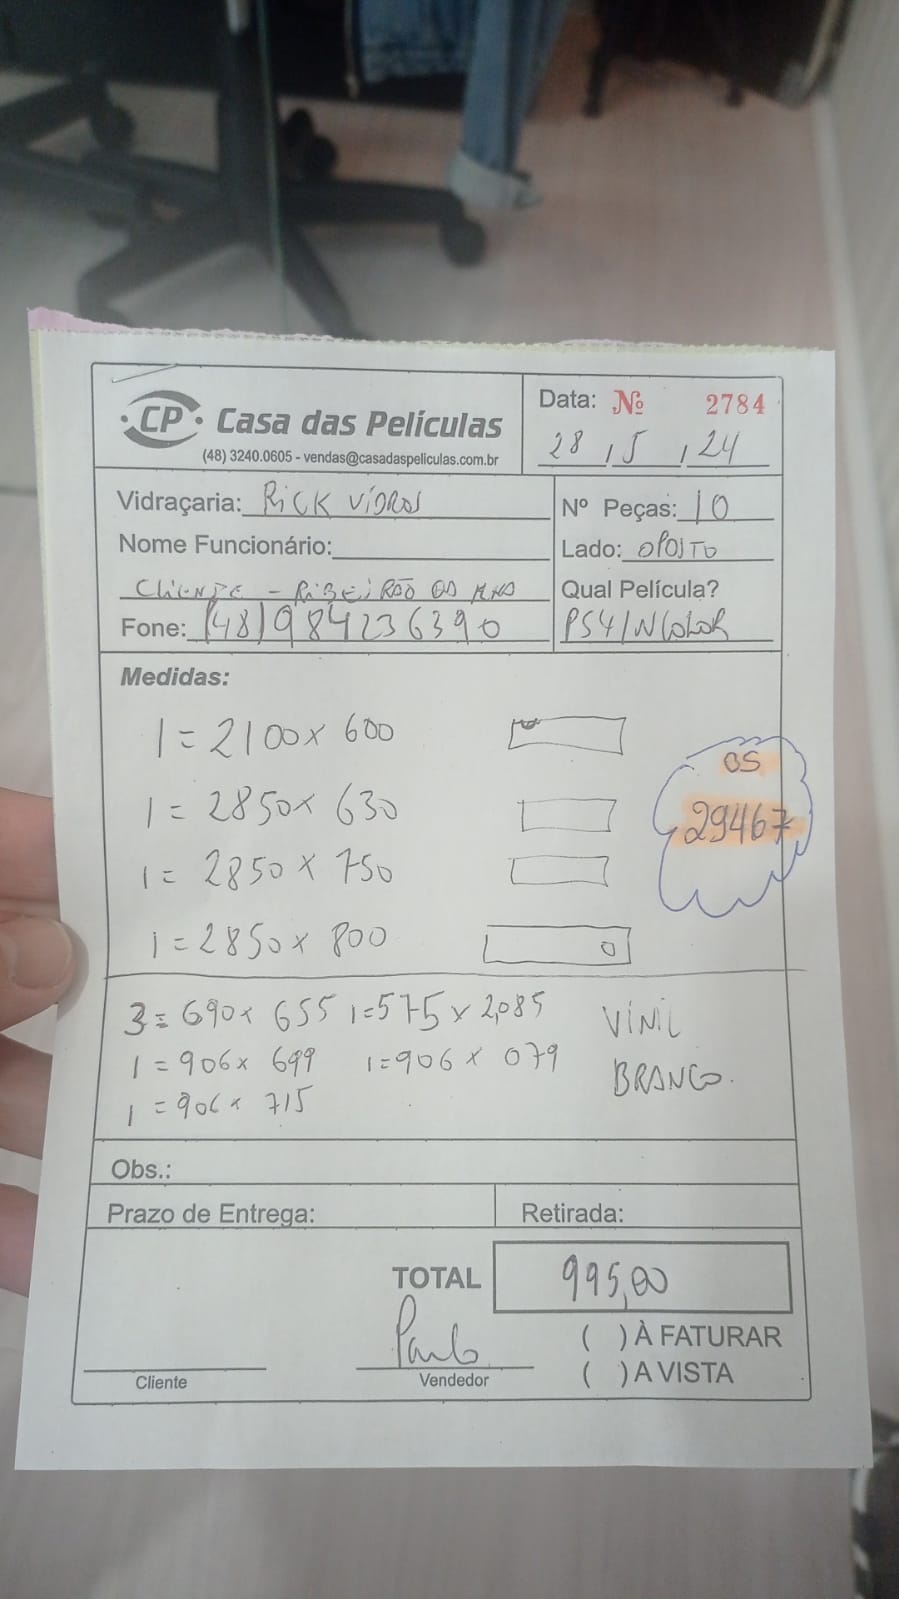 CP Casa das Películas
(48) 3240.0605 - vendas@casadaspeliculas.com.br
Data: Nº 2784
28 / 5 / 24
Vidraçaria: RICK VIDROS
Nº Peças: 10
Nome Funcionário:
Lado: OPOSTO
CLIENTE - RIBEIRÃO DA
Qual Película?
Fone: (48) 984236390
PS4/INCOLOR
Medidas:
1 = 2100 x 600
OS
1 = 2850 x 630
29467
1 = 2850 x 750
1 = 2850 x 800
3 = 690 x 655 1 = 575 x 2,085 VINIL
1 = 906 x 699 1 = 906 x 079 BRANCO.
1 = 906 x 715
Obs.:
Prazo de Entrega:
Retirada:
TOTAL 995,00
Paulo
( ) À FATURAR
( ) A VISTA
Cliente
Vendedor